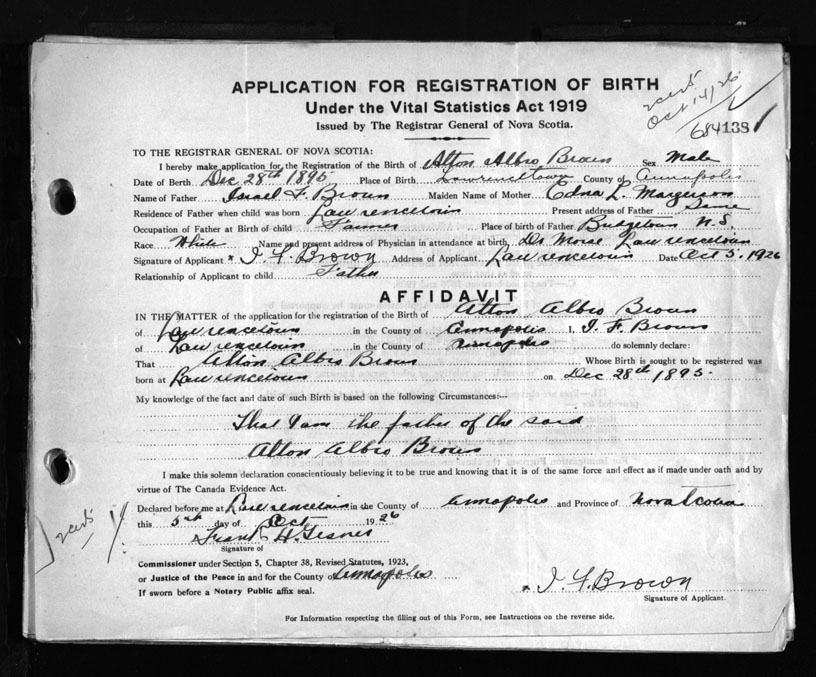 APPLICATION FOR REGISTRATION OF BIRTH
Under the Vital Statistics Act 1919
Issued by The Registrar General of Nova Scotia.
Oct 14/26
684138
TO THE REGISTRAR GENERAL OF NOVA SCOTIA:
I hereby make application for the Registration of the Birth of Alton Albro Brown Sex Male
Date of Birth Dec 28th 1895 Place of Birth Lawrencetown County of Annapolis
Name of Father Israel F. Brown Maiden Name of Mother Edna L. Margeson
Residence of Father when child was born Lawrencetown Present address of Father Same
Occupation of Father at Birth of child Farmer Place of birth of Father Bridgetown N.S.
Race White Name and present address of Physician in attendance at birth Dr Morse Lawrencetown
Signature of Applicant x I F Brown Address of Applicant Lawrencetown Date Oct 5. 1926
Relationship of Applicant to child Father
AFFIDAVIT
IN THE MATTER of the application for the registration of the Birth of Alton Albro Brown
of Lawrencetown in the County of Annapolis I, I. F. Brown
of Lawrencetown in the County of Annapolis do solemnly declare:
That Alton Albro Brown Whose Birth is sought to be registered was
born at Lawrencetown on Dec 28th 1895.
My knowledge of the fact and date of such Birth is based on the following Circumstances:—
That I am the father of the said
Alton Albro Brown
I make this solemn declaration conscientiously believing it to be true and knowing that it is of the same force and effect as if made under oath and by
virtue of The Canada Evidence Act.
Declared before me at Lawrencetown in the County of Annapolis and Province of Nova Scotia
this 5th day of Oct 1926
Signature of
Commissioner under Section 5, Chapter 38, Revised Statutes, 1923,
or Justice of the Peace in and for the County of Annapolis
If sworn before a Notary Public affix seal.
x I F Brown
Signature of Applicant.
For Information respecting the filling out of this Form, see Instructions on the reverse side.